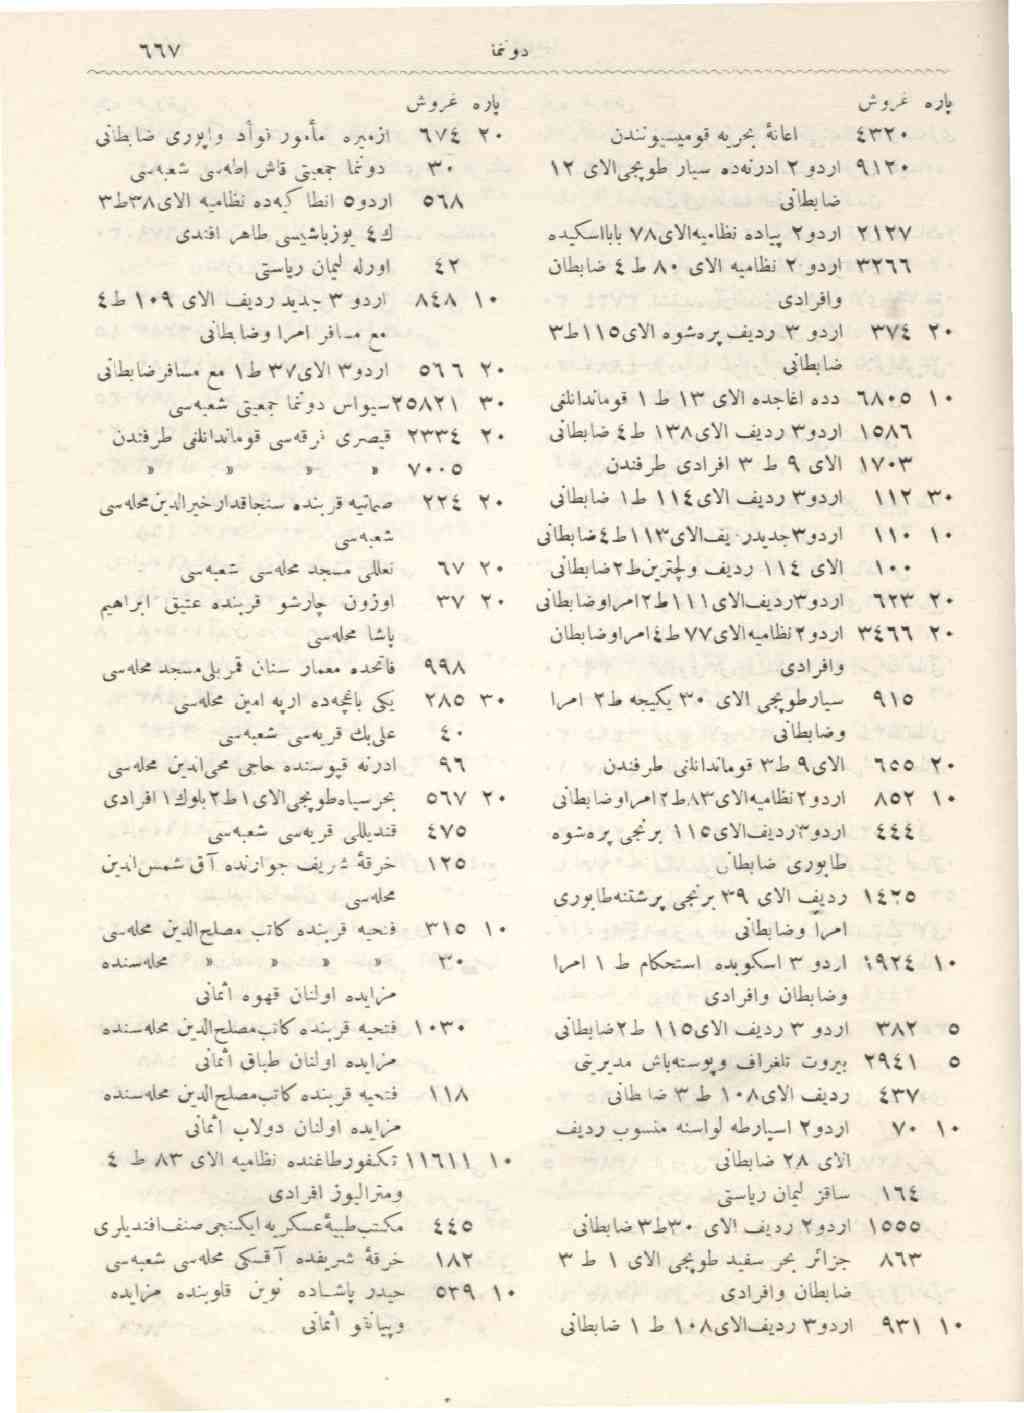 دونما ٦٦٧
پاره غروش
٤٣٢٠ اعانهٔ بحریه قومیسیونندن
٩١٢٠ اردو ٢ ادرنه‌ده سیار طوپجی‌الای ١٢
ضابطانی
٢١٢٧ اردو٢ پیاده نظامیه‌الای٧٨ بابااسکیده
٣٢٦٦ اردو ٢ نظامیه الای ٨٠ ط ٤ ضابطان
وافرادی
٢٠ ٣٧٤ اردو ٣ ردیف پره‌شوه الای١١٥ط٣
ضابطانی
١٠ ٦٨٠٥ دده اغاجده الای ١٣ ط ١ قوماندانلغی
١٥٨٦ اردو٣ ردیف الای١٣٨ ط٤ ضابطانی
١٧٠٣ الای ٩ ط ٣ افرادی طرفندن
٣٠ ١١٢ اردو٣ ردیف الای١١٤ ط١ ضابطانی
١٠ ١١٠ اردو٣جدیدردیف‌الای١١٣ط٤ضابطانی
١٠٠ الای ١١٤ ردیف ولچترین‌ط٢ضابطانی
٢٠ ٦٢٣ اردو٣ردیف‌الای١١١ط٢امراوضابطانی
٢٠ ٣٤٦٦ اردو٢نظامیه‌الای٧٧ ط٤امراوضابطان
وافرادی
٩١٥ سیارطوپجی الای ٣٠ یکیجه ط٢ امرا
وضابطانی
٢٠ ٦٥٥ الای٩ ط٣ قوماندانلغی طرفندن
١٠ ٨٥٢ اردو٢نظامیه‌الای٨٣ط٢امراوضابطانی
٤٤٤ اردو٣ردیف‌الای١١٥ برنجی پره‌شوه
طابوری ضابطانی
١٤٢٥ ردیف الای ٣٩ برنجی پرشتنه‌طابوری
امرا وضابطانی
١٠ ٤٩٢٤ اردو ٣ اسکوبده استحکام ط ١ امرا
وضابطان وافرادی
٥ ٣٨٢ اردو ٣ ردیف الای١١٥ ط٢ضابطانی
٥ ٢٩٤١ بیروت تلغراف وپوسته‌باش مدیریتی
٤٣٧ ردیف الای١٠٨ ط ٣ ضابطانی
١٠ ٧٠ اردو٢ لواسنه منسوب ردیف
الای ٢٨ ضابطانی
١٦٤ ساقز لیمان ریاستی
١٥٥٥ اردو٢ ردیف الای ٣٠ط٣ ضابطانی
٨٦٣ جزائر بحر سفید طوپجی الای ١ ط ٣
ضابطان وافرادی
١٠ ٩٣١ اردو٣ ردیف‌الای١٠٨ ط ١ ضابطانی
پاره غروش
٢٠ ٦٧٤ ازمیره مأمور نوأد واپوری ضابطانی
٣٠ دونما جمعیتی قاش اطه‌سی شعبه‌سی
٥٦٨ اردو٥ انطاکیه‌ده نظامیه الای٣٨ط٣
ك٤ یوزباشیسی طاهر افندی
٤٢ اورله لیمان ریاستی
١٠ ٨٤٨ اردو ٣ جدید ردیف الای ١٠٩ ط٤
مع مسافر امرا وضابطانی
٢٠ ٥٦٦ اردو٣ الای٣٧ ط١ مع مسافرضابطانی
٣٠ ٢٥٨٢١سیواس دونما جمعیتی شعبه‌سی
٢٠ ٢٣٣٤ قیصری فرقه‌سی قوماندانلغی طرفندن
٧٠٠٥ » » » »
٢٠ ٢٢٤ صماتیه قربنده سنجاقدارخیرالدین‌محله‌سی
شعبه‌سی
٢٠ ٦٧ نعللی مسجد محله‌سی شعبه‌سی
٢٠ ٣٧ اوزون چارشو قربنده عتیق ابراهیم
پاشا محله‌سی
٩٩٨ فاتحده معمار سنان قمریلی‌مسجد محله‌سی
٣٠ ٢٨٥ یکی باغچه‌ده ارپه امین محله‌سی
٤٠ علی‌بك قریه‌سی شعبه‌سی
٩٦ ادرنه قپوسنده حاجی محی‌الدین محله‌سی
٢٠ ٥٦٧ بحرسیاه‌طوپجی‌الای١ ط٢ بلوك١ افرادی
٤٧٥ قندیللی قریه‌سی شعبه‌سی
١٢٥ خرقهٔ شریف جوارنده آق شمس‌الدین
محله‌سی
١٠ ٣١٥ فتحیه قربنده کاتب مصلح‌الدین محله‌سی
٣٠ » » » » محله‌سنده
مزایده اولنان قهوه اثمانی
١٠٣٠ فتحیه قربنده کاتب‌مصلح‌الدین محله‌سنده
مزایده اولنان طباق اثمانی
١١٨ فتحیه قربنده کاتب‌مصلح‌الدین محله‌سنده
مزایده اولنان دولاب اثمانی
١٠ ١١٦١١ تکفورطاغنده نظامیه الای ٨٣ ط ٤
ومترالیوز افرادی
٤٤٥ مکتب‌طبیهٔ‌عسکریه ایکنجی‌صنف‌افندیلری
١٨٢ خرقهٔ شریفده آقسکی محله‌سی شعبه‌سی
١٠ ٥٣٩ حیدر پاشاده نوین قلوبنده مزایده
وپیانقو اثمانی